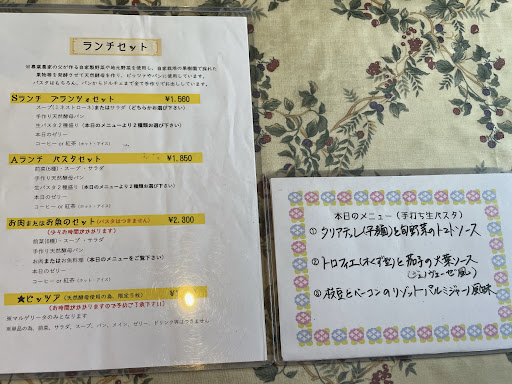 ランチセット
※専業農家の父が作る自家製野菜や地元野菜を使用し、自家栽培の果樹園で採れた
果物等を発酵させて天然酵母を作り、ピッツァやパンに使用しています。
パスタはもちろん、パンからドルチェまで全て手作りでお出ししています。
Sランチ プランツォセット ¥1,560
スープ(ミネストローネ)またはサラダ(どちらかお選び下さい)
手作り天然酵母パン
生パスタ2種盛り(本日のメニューより2種類お選び下さい)
本日のゼリー
コーヒー or 紅茶(ホット・アイス)
Aランチ パスタセット ¥1,850
前菜(6種)・スープ・サラダ
手作り天然酵母パン
生パスタ2種盛り(本日のメニューより2種類お選び下さい)
本日のゼリー
コーヒー or 紅茶(ホット・アイス)
お肉またはお魚のセット(パスタはつきません) ¥2,300
(少々お時間がかかります)
前菜(6種)・スープ・サラダ
手作り天然酵母パン
お肉またはお魚料理(本日のメニューをご覧下さい)
本日のゼリー
コーヒー or 紅茶(ホット・アイス)
★ピッツァ(天然酵母使用の為、限定5枚)
(お時間がかかりますので予約ご了承下さい)
※マルゲリータのみとなります
※単品の為、前菜、サラダ、スープ、パン、メイン、ゼリー、ドリンク等はつきません
本日のメニュー(手打ち生パスタ)
① タリアテッレ(平麺)と旬野菜のトマトソース
② トロフィエ(ネくず型)と茄子の大葉ソース
(ジェノヴェーゼ風)
③ 枝豆とベーコンのリゾットパルミジャーノ風味